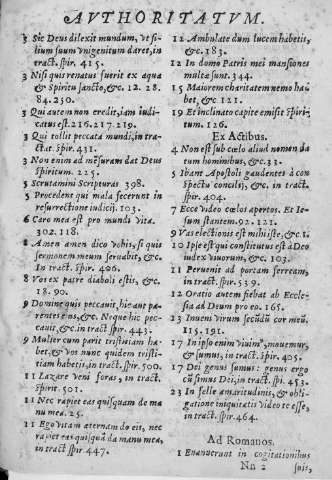 AVTHORITATVM.
3 Sic Deus dilexit mundum, vt fi-
lium suum vnigenitum daret, in
tract. spir. 415.
3 Nisi quis renatus fuerit ex aqua
& Spiritu sancto, &c. 12. 28.
84. 250.
3 Qui autem non credit, iam iudi-
catus est. 216. 217. 219.
3 Qui tollit peccata mundi, in tra-
ctat. spir. 431.
3 Non enim ad mẽsuram dat Deus
spiritum. 225.
5 Scrutamini Scripturas 398.
5 Procedent qui mala fecerunt in
resurrectione iudicij. 103.
6 Caro mea est pro mundi vita.
302. 118.
8 Amen amen dico vobis, si quis
sermonem meum seruabit, &c.
In tract. spir. 406.
8 Vos ex patre diaboli estis, &c.
18. 90.
9 Domine quis peccauit, hic aut pa-
rentes eius, &c. Neque hic pec-
cauit, &c. in tract. spir. 443.
9 Mulier cum parit tristitiam ha-
bet, & vos nunc quidem tristi-
tiam habetis, in tract. spir. 500.
11 Lazare veni foras, in tract.
spirit. 501.
11 Nec rapiet eas quisquam de ma
nu mea. 25.
11 Ego vitam æternam do eis, nec
rapiet eas quisquã de manu mea,
in tract. spir 447.
12 Ambulate dum lucem habetis,
&c. 183.
12 In domo Patris mei mansiones
multæ sunt. 344.
15 Maiorem charitatem nemo ha-
bet, &c 121.
19 Et inclinato capite emisit spiri-
tum. 126.
Ex Actibus.
4 Non est sub cœlo aliud nomen da
tum hominibus, &c 31.
5 Ibant Apostoli gaudentes à con
spectu concilij, &c. in tract. spir.
404.
7 Ecce video cœlos apertos. Et Ie-
sum stantem. 92. 121.
9 Vas electionis est mihi iste, &c 1.
10 Ipse est qui constitutus est à Deo
iudex viuorum, &c. 103.
11 Peruenit ad portam ferream,
in tract. spir. 539.
12 Oratio autem fiebat ab Eccle-
sia ad Deum pro eo. 165.
13 Inueni virum secũdũ cor meũ.
115. 191.
17 In ipso enim viuim9, mouemur,
& sumus, in tract. spir. 405.
17 Dei genus sumus: genus ergo
cũ simus Dei, in tract. spi. 453.
23 In felle amaritudinis, & obli-
gatione iniquitatis video te esse,
in tract. spir. 464.
Ad Romanos.
1 Euanuerunt in cogitationibus
Nn 2 suis,